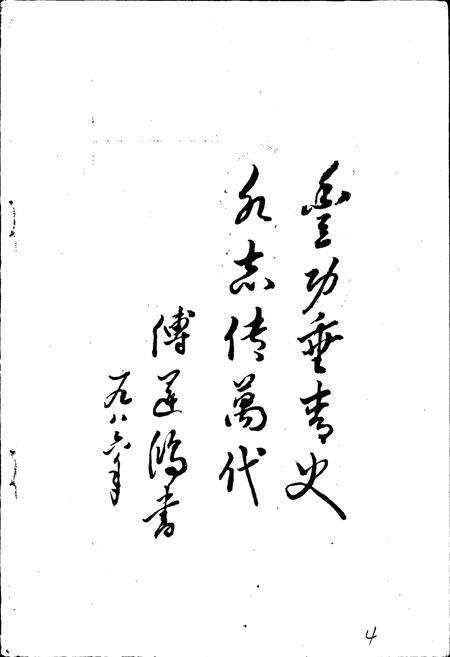 豐功垂青史
永志传萬代
傅鸿书
一九八六年
4